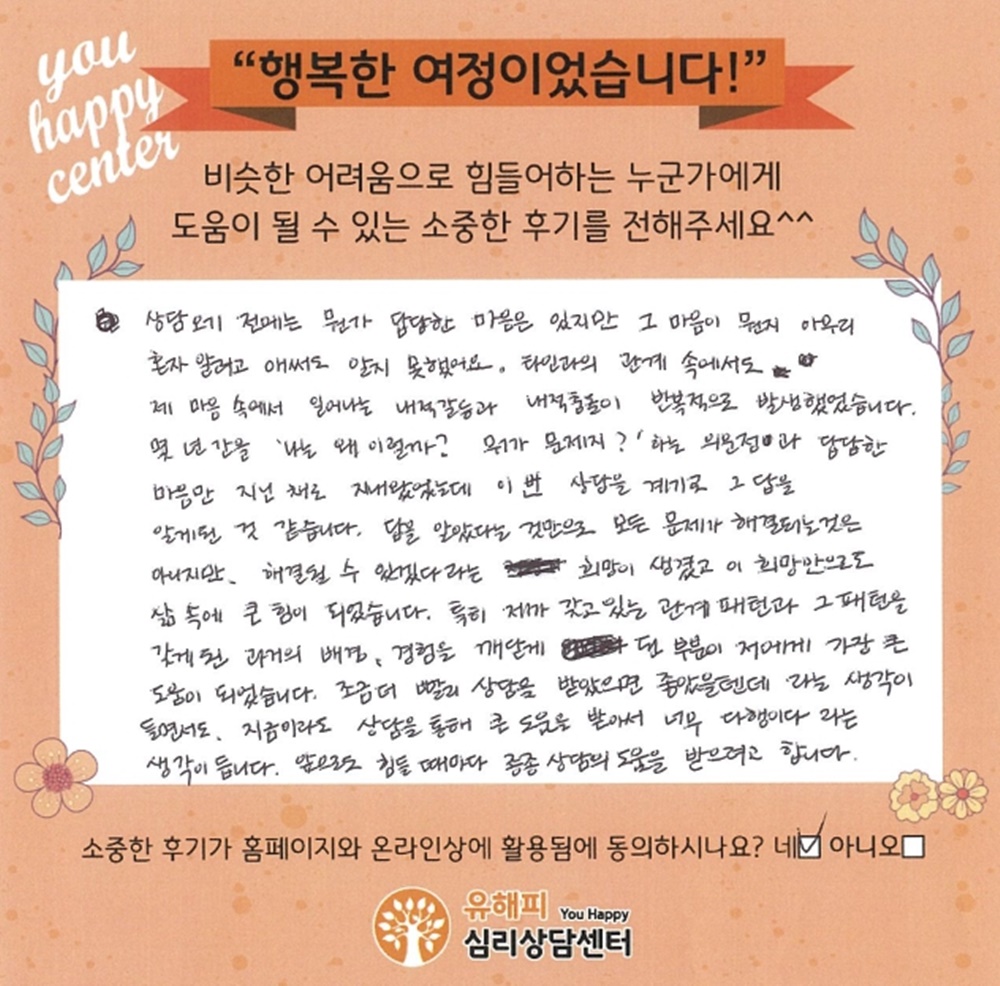 you
happy
center
“행복한 여정이었습니다!”
비슷한 어려움으로 힘들어하는 누군가에게
도움이 될 수 있는 소중한 후기를 전해주세요^^
상담오기 전에는 뭔가 답답한 마음은 있지만 그 마음이 뭔지 아무리
혼자 알려고 애써도 알지 못했어요. 타인과의 관계 속에서도
제 마음 속에서 일어나는 내적갈등과 내적충돌이 반복적으로 발생했었습니다.
몇 년간을 '나는 왜 이럴까? 뭐가 문제지?' 하는 의문점과 답답한
마음만 지닌 채로 지내왔었는데 이 번 상담을 계기로 그 답을
알게된 것 같습니다. 답을 알았다는 것만으로 모든 문제가 해결되는것은
아니지만, 해결될 수 있겠다라는 희망이 생겼고 이 희망만으로도
삶 속에 큰 힘이 되었습니다. 특히 제가 갖고있는 관계패턴과 그패턴을
갖게 된 과거의 배경, 경험을 깨닫게 된 부분이 저에게 가장 큰
도움이 되었습니다. 조금더 빨리 상담을 받았으면 좋았을텐데 라는 생각이
들면서도, 지금이라도 상담을 통해 큰 도움을 받아서 너무 다행이다 라는
생각이 듭니다. 앞으로도 힘들 때마다 종종 상담의 도움을 받으려고 합니다.
소중한 후기가 홈페이지와 온라인상에 활용됨에 동의하시나요? 네☑ 아니오☐
유해피 You Happy
심리상담센터